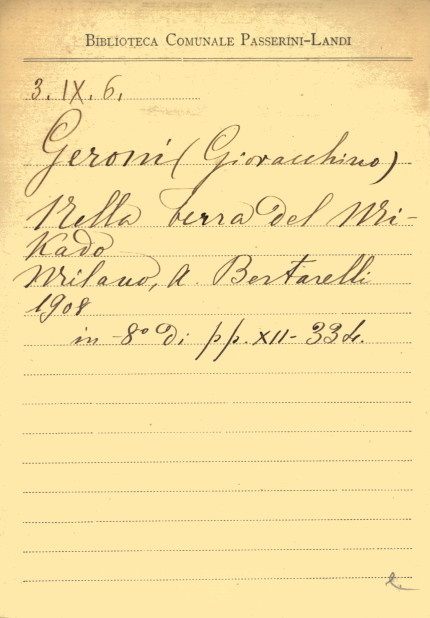 BIBLIOTECA COMUNALE PASSERINI-LANDI
3. IX. 6.
Geroni (Giovacchino)
Nella terra del Mi-
kado
Milano, A. Bertarelli
1908
in-8° di pp. XII-334.
2.